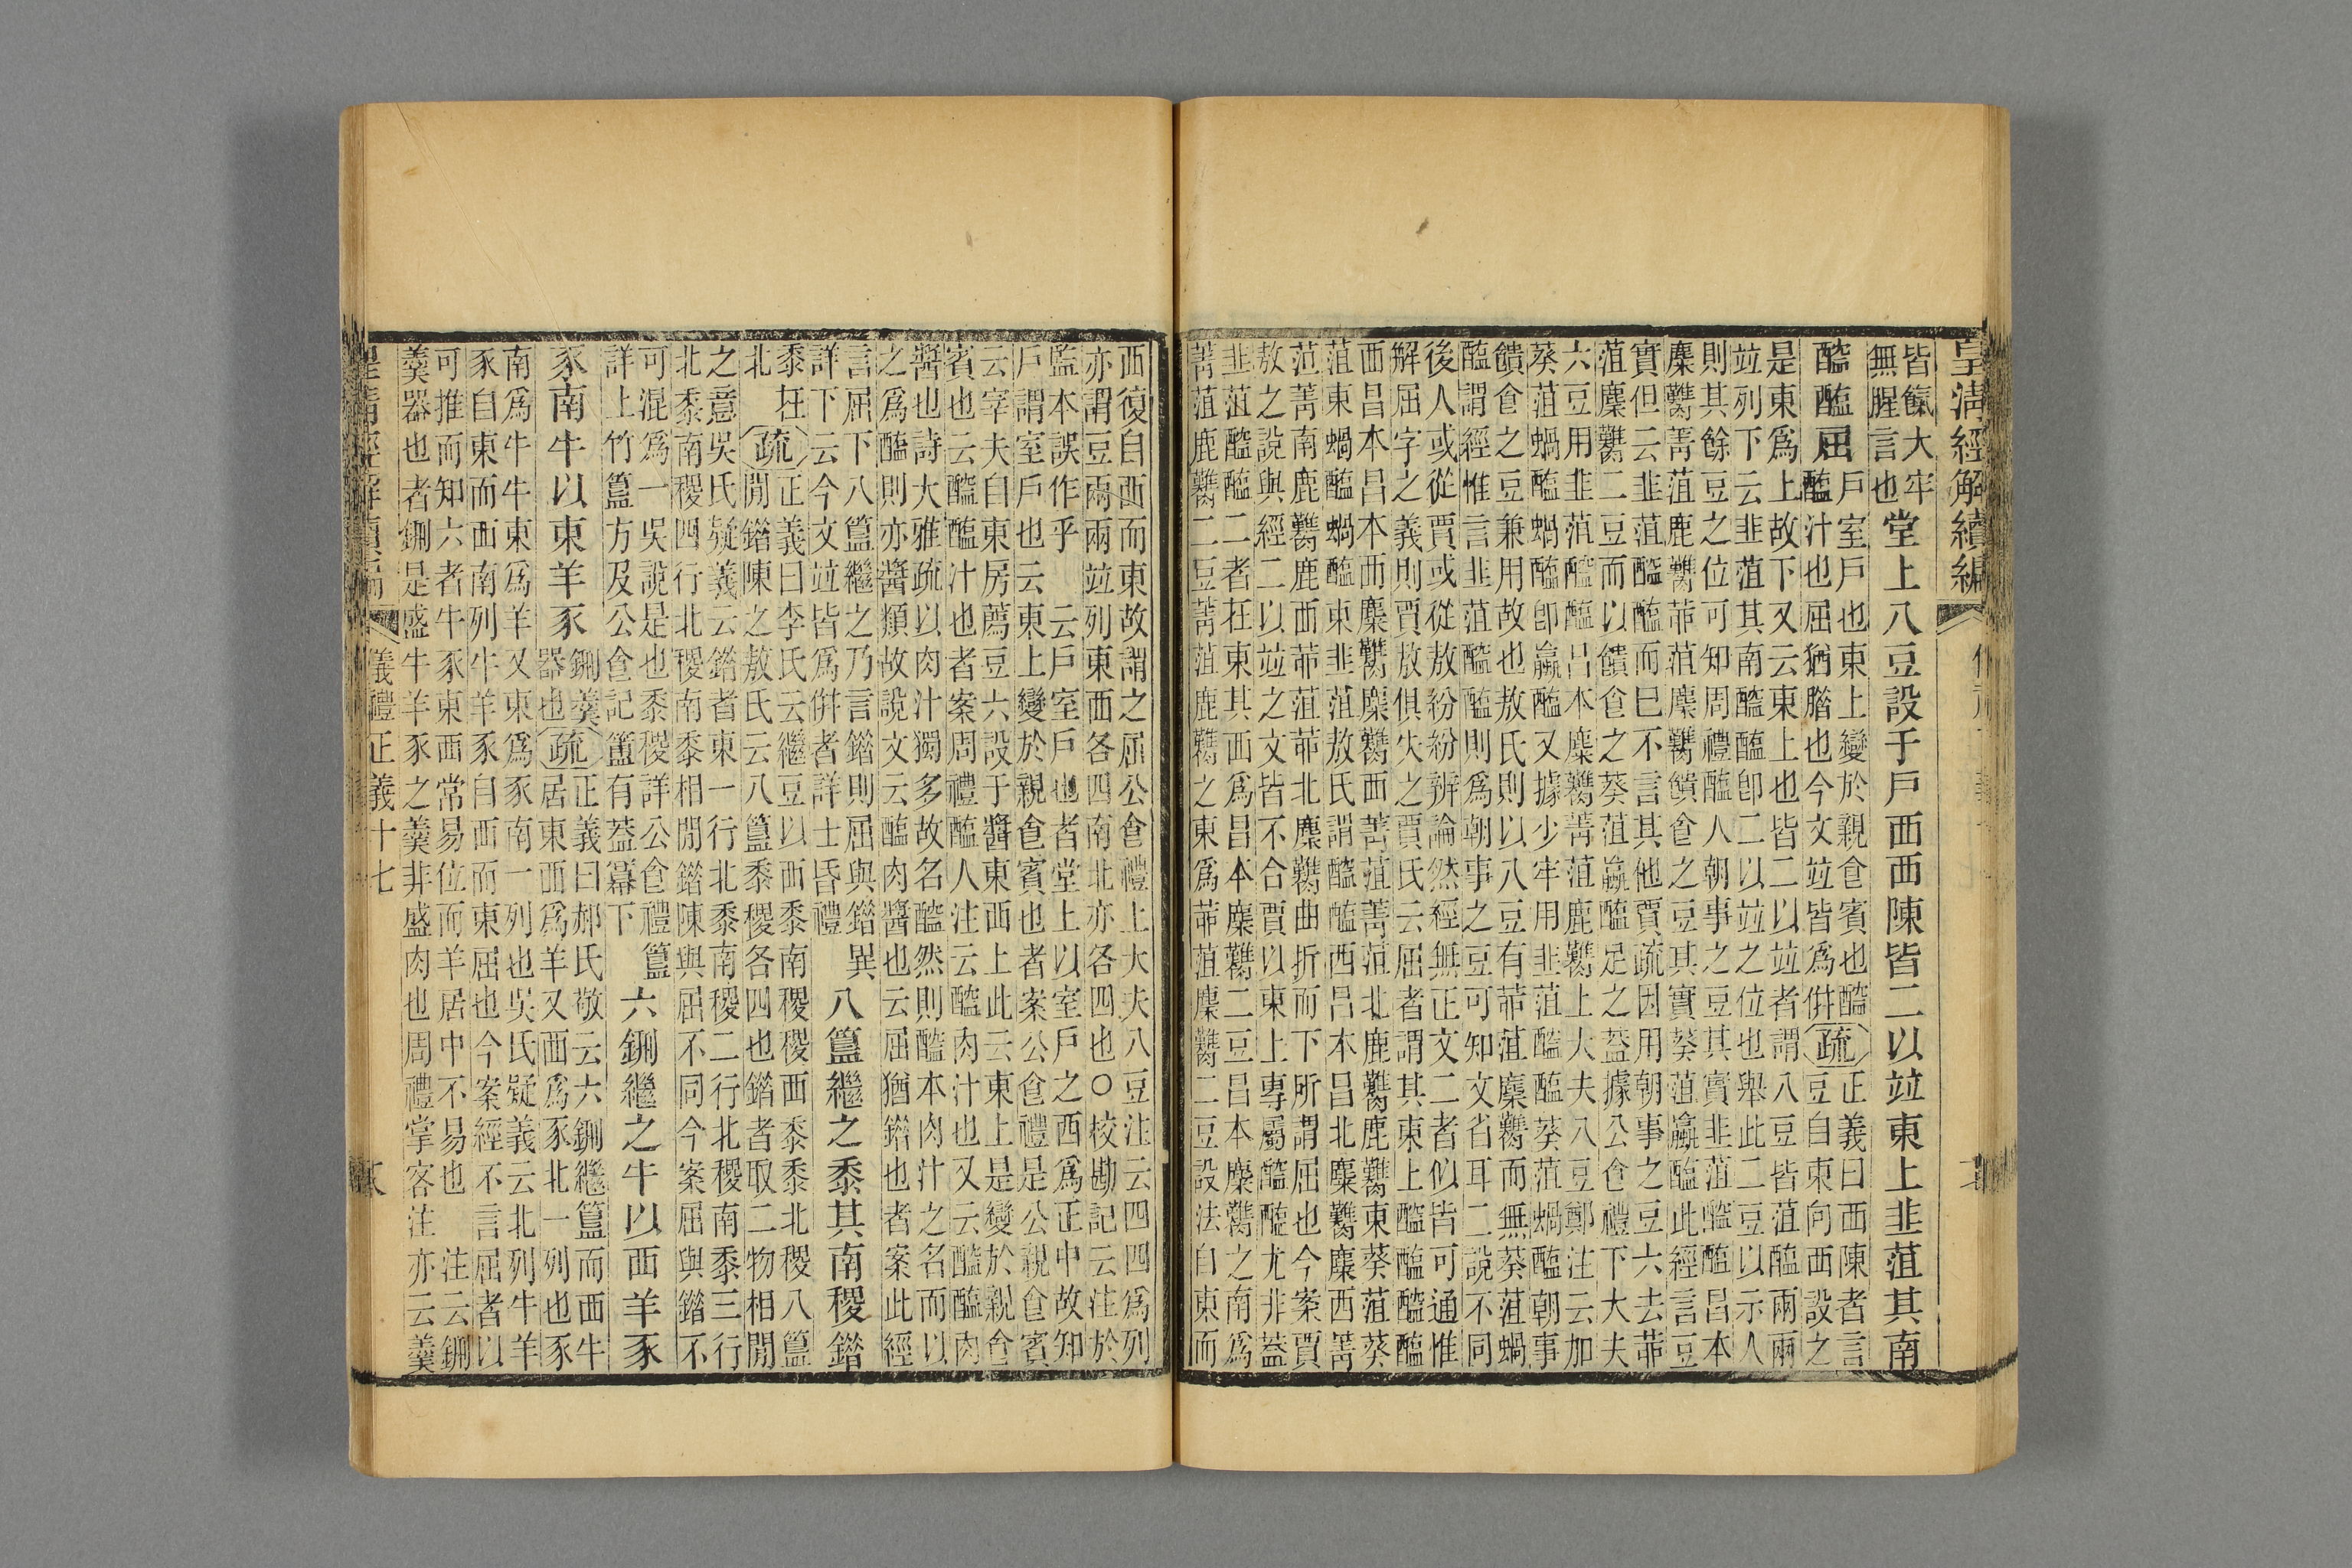 皇清經解續編
皆餼大牢
無腥言也
堂上八豆設于戶西西陳皆二以竝東上韭菹其南
醓醢屈
戶室戶也東上變於親食賓也醓
醢汁也屈猶䐉也今文竝皆爲併
疏
正義曰西陳者言
豆自東向西設之
是東爲上故下又云東上也皆二以竝者謂八豆皆菹醢兩兩
竝列下云韭菹其南醓醢卽二以竝之位也舉此二豆以示人
則其餘豆之位可知周禮醢人朝事之豆其實韭菹醓醢昌本
麋臡菁菹鹿臡茆菹麋臡饋食之豆其實葵菹蠃醢此經言豆
實但云韭菹醓醢而巳不言其他賈疏因用朝事之豆六去茆
菹麋臡二豆而以饋食之葵菹蠃醢足之葢據公食禮下大夫
六豆用韭菹醓醢昌本麋臡菁菹鹿臡上大夫八豆鄭注云加
葵菹蝸醢蝸醢卽蠃醢又據少牢用韭菹醓醢葵菹蝸醢朝事
饋食之豆兼用故也敖氏則以八豆有茆菹麋臡而無葵菹蝸
醢謂經惟言韭菹醓醢則爲朝事之豆可知文省耳二說不同
後人或從賈或從敖紛紛辨論然經無正文二者似皆可通惟
解屈字之義則賈敖俱失之賈氏云屈者謂其東上醓醢醓醢
西昌本昌本西麋臡麋臡西菁菹菁菹北鹿臡鹿臡東葵菹葵
菹東蝸醢蝸醢東韭菹敖氏謂醓醢西昌本昌北麋臡麋西菁
菹菁南鹿臡鹿西茆菹茆北麋臡曲折而下所謂屈也今案賈
敖之說與經二以竝之文皆不合賈以東上專屬醓醢尤非蓋
韭菹醓醢二者在東其西爲昌本麋臡二豆昌本麋臡之南爲
菁菹鹿臡二豆菁菹鹿臡之東爲茆菹麋臡二豆設法自東而
西復自西而東故謂之屈公食禮上大夫八豆注云四四爲列
亦謂豆兩兩竝列東西各四南北亦各四也○校勘記云注於
監本誤作乎 云戶室戶也者堂上以室戶之西爲正中故知
戶謂室戶也云東上變於親食賓也者案公食禮是公親食賓
云宰夫自東房薦豆六設于醬東西上此云東上是變於親食
賓也云醓醢汁也者案周禮醢人注云醓肉汁也又云醓醢肉
醬也詩大雅疏以肉汁獨多故名醓然則醓本肉汁之名而以
之爲醢則亦醬類故說文云醢肉醬也云屈猶錯也者案此經
言屈下八簋繼之乃言錯則屈與錯異
詳下云今文竝皆爲併者詳士昏禮
八簋繼之黍其南稷錯
黍在
北
疏
正義曰李氏云繼豆以西黍南稷稷西黍黍北稷八簋
閒錯陳之敖氏云八簋黍稷各四也錯者取二物相閒
之意吳氏疑義云錯者東一行北黍南稷二行北稷南黍三行
北黍南稷四行北稷南黍相閒錯陳與屈不同今案屈與錯不
可混爲一吳說是也黍稷詳公食禮簋
詳上竹簋方及公食記簠有葢冪下
六鉶繼之牛以西羊豕
豕南牛以東羊豕
鉶羹
器也
疏
正義曰郝氏敬云六鉶繼簋而西牛
居東西爲羊又西爲豕北一列也豕
南爲牛牛東爲羊又東爲豕南一列也吳氏疑義云北列牛羊
豕自東而西南列牛羊豕自西而東屈也今案經不言屈者以
可推而知六者牛豕東西常易位而羊居中不易也 注云鉶
羹器也者鉶是盛牛羊豕之羹非盛肉也周禮掌客注亦云羹
皇清經解續編
儀禮正義十七